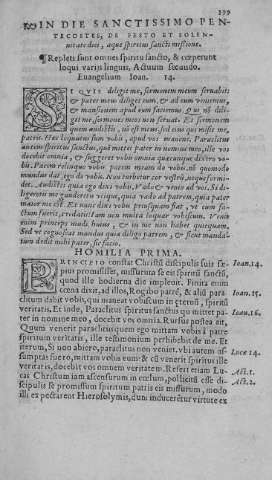 299
IN DIE SANCTISSIMO PEN-
TECOSTES, DE FESTO ET SOLEN-
nitate diei, atque spiritus sancti missione.
¶ Repleti sunt omnes spiritu sancto, & cœperunt
loqui variis linguis, Actuum secundo.
Euangelium Ioan. 14.
SI QVIS diligit me, sermonem meum seruabit:
& pater meus diliget eum, & ad eum veniemus,
& mansionem apud eum faciemus. Qui non dili-
git me, sermones meos non seruat. Et sermonem
quem audistis, non est meus, sed eius qui misit me,
patris. Hæc loquutus sum vobis, apud vos manens. Paraclitus
autem spiritus sanctus, quem mittet pater in nomine meo, ille vos
docebit omnia, & suggeret vobis omnia quæcunque dixero vo-
bis. Pacem relinquo vobis, pacem meam do vobis, non quomodo
mundus dat, ego do vobis. Non turbetur cor vestrum, neque formi-
det. Audistis quia ego dixi vobis, Vado & venio ad vos. Si di-
ligeretis me, gauderetis vtique, quia vado ad patrem, quia pater
maior me est. Et nunc dixi vobis priusquam fiat, vt cum fa-
ctum fuerit, credatis. Iam non multa loquar vobiscum. Venit
enim princeps mundi huius, & in me non habet quicquam.
Sed vt cognoscat mundus quia diligo patrem, & sicut manda-
tum dedit mihi pater, sic facio.
HOMILIA PRIMA.
PRINCIPIO constat Christum discipulis suis sæ-
pius promisisse, missurum se eis spiritum sanctum,
quod ille hodierna die impleuit. Finita enim
cœna dixit, ad illos, Rogabo patrem, & alium para-
clitum dabit vobis, qui maneat vobiscum in æternum, spiritum
veritatis. Et inde, Paraclitus spiritus sanctus quem mittet pa-
ter in nomine meo, docebit vos omnia. Rursus postea ait,
Quum venerit paraclitus quem ego mittam vobis à patre
spiritum veritatis, ille testimonium perhibebit de me. Et
iterum, Si non abiero, paraclitus non veniet. vbi autem as-
sumptus fuero, mittam vobis eum: & cum venerit spiritus ille
veritatis, docebit vos omnem veritatem. Refert etiam Lu-
cas Christum iam ascensurum in cœlum, pollicitum esse di-
scipulis se promissum spiritum patris eis missurum, modo
illi expectarent Hierosolymis, dum induerentur virtute ex
Ioan. 14.
Ioan. 15.
Ioan. 16.
Lucæ 24.
Act. 1.
Act. 2.